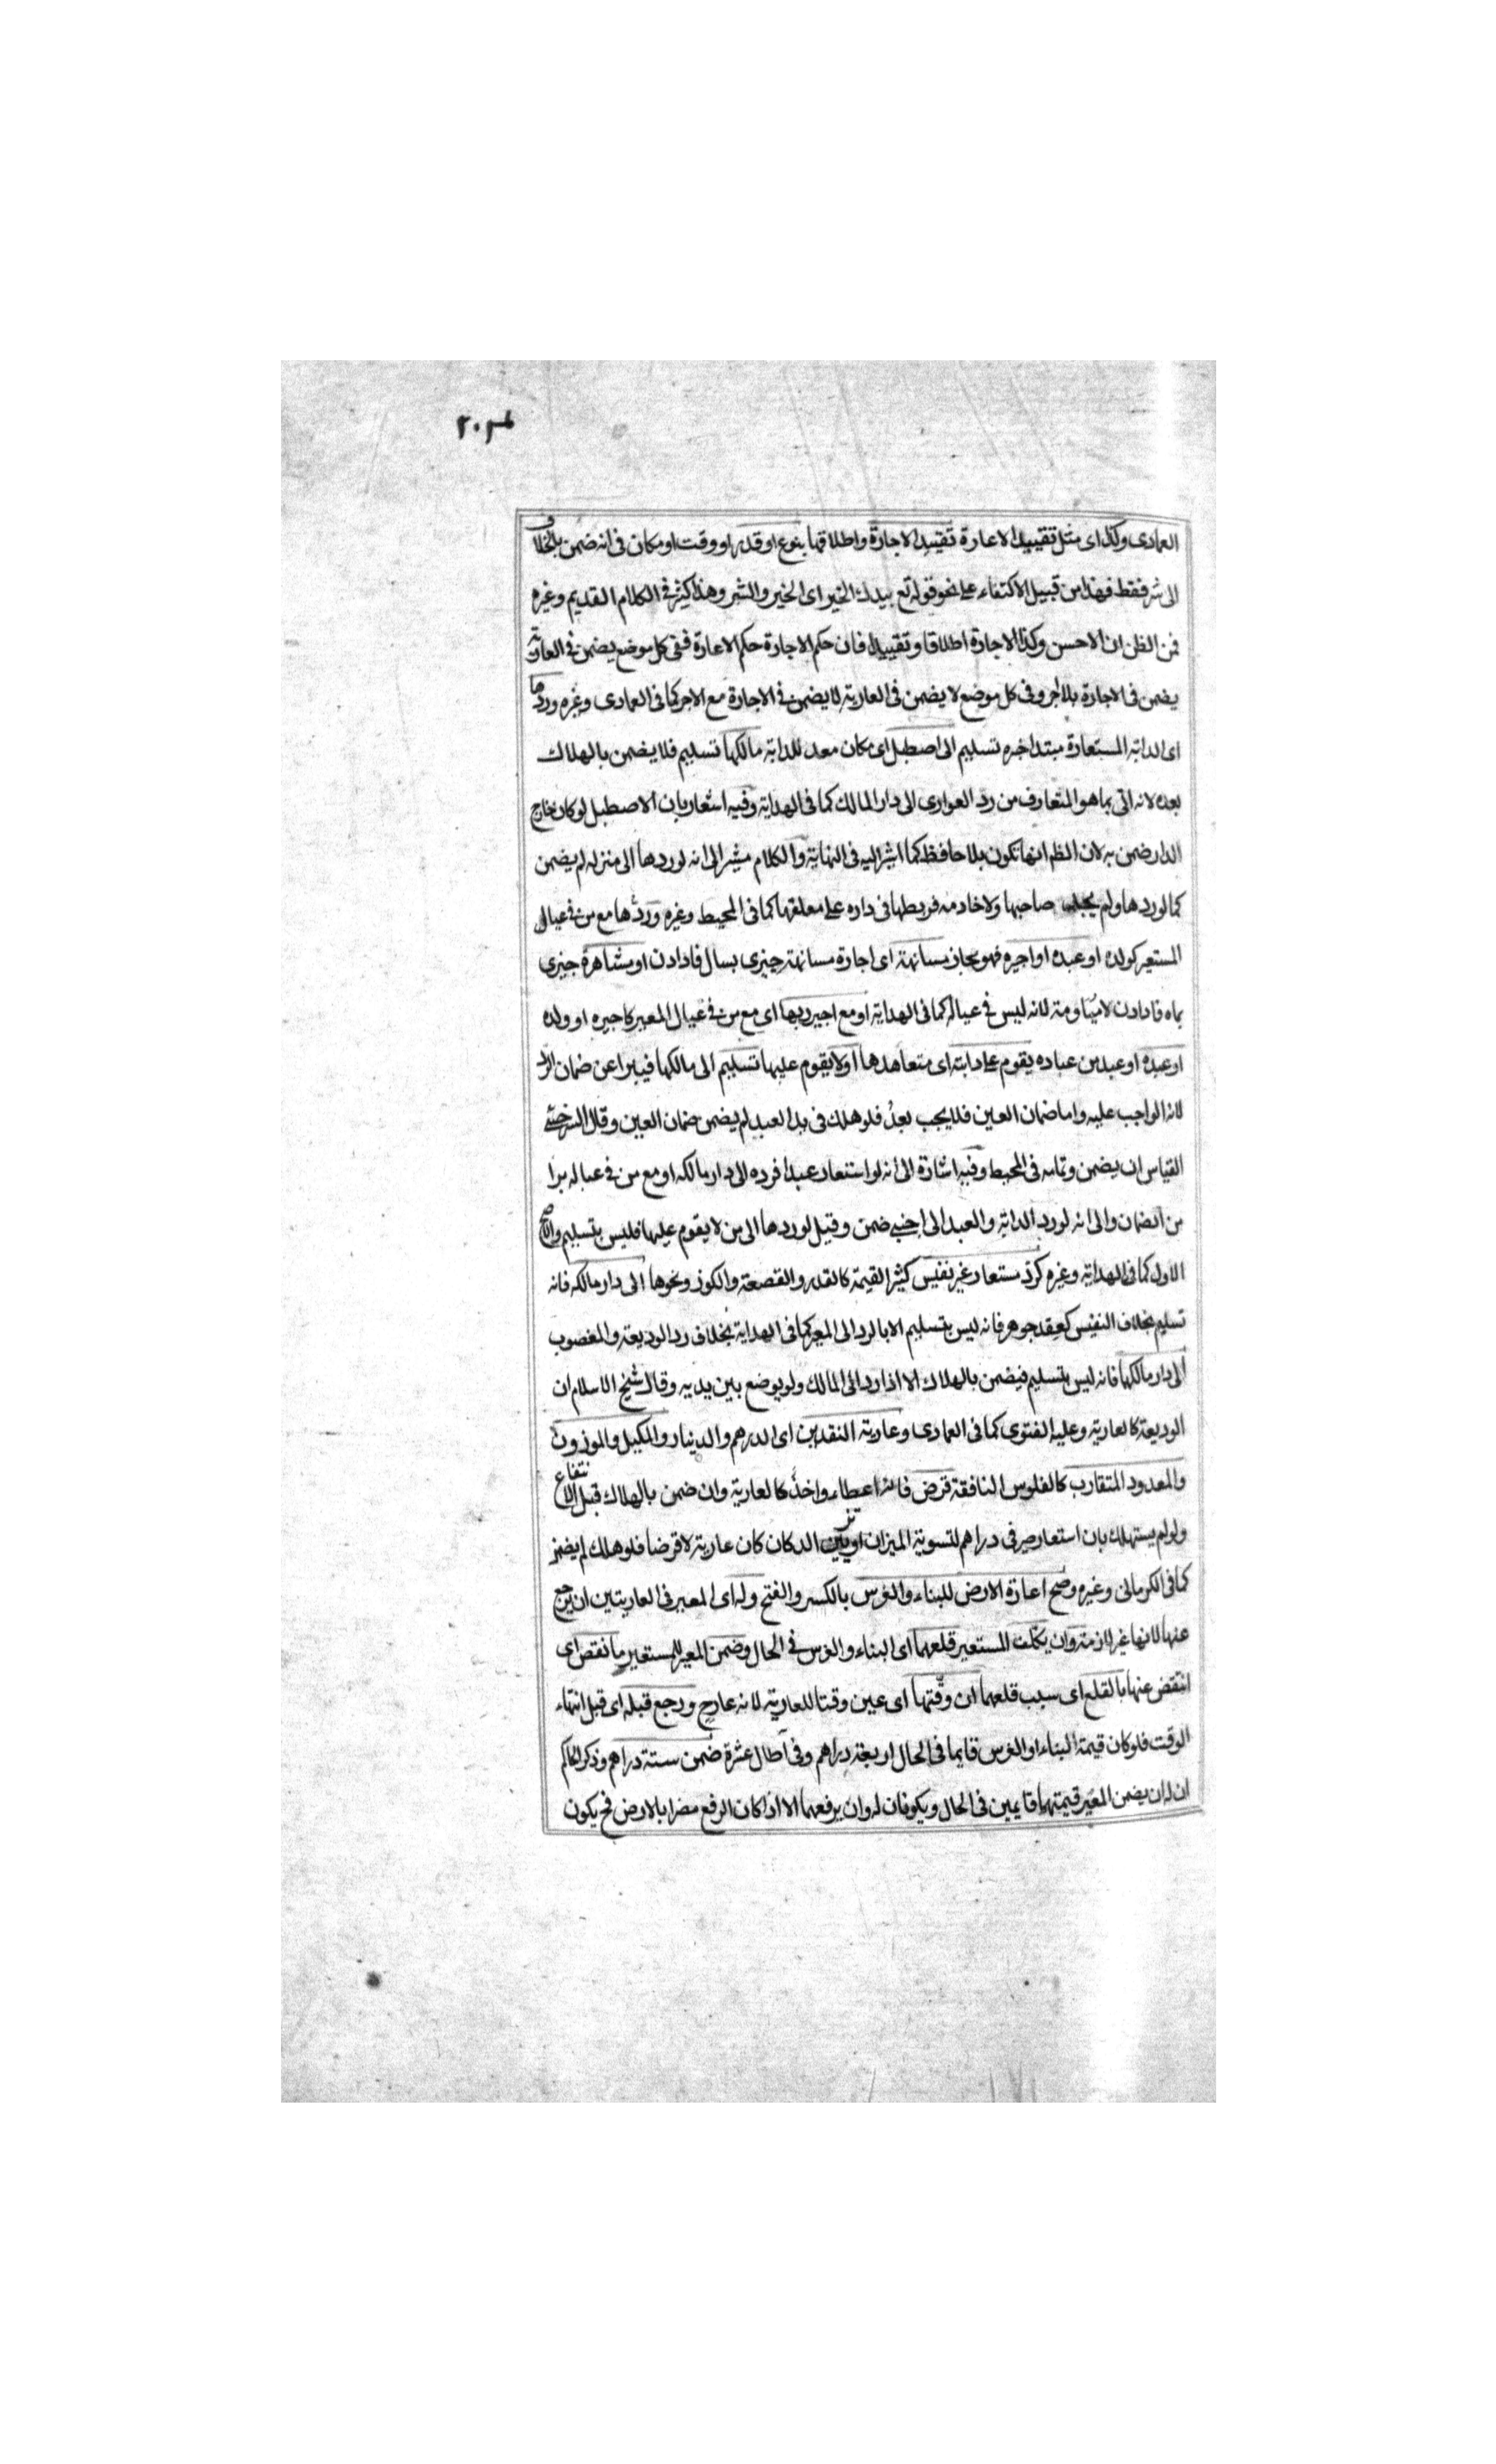 العمادى وكذا اى مثل تقييد الاعارة تقييد الاجارة واطلاقها بنوع او قدر او وقت او مكان فى انه ضمن بالخلاف
الى شر فقط فهذا من قبيل الاكتفاء على نحو قوله تع بيدك الخير اى الخير والشر وهذا كثير فى الكلام القديم وغيره
فمن الظن ان الاحسن وكذا الاجارة اطلاقا وتقييدا فان حكم الاجارة حكم الاعارة ففى كل موضع يضمن فى العارية
يضمن فى الاجارة بلا اجر وفى كل موضع لا يضمن فى العارية لا يضمن فى الاجارة مع الاجر كما فى العمادى وغيره وردها
اى الدابة المستعارة مبتدا خبره تسليم الى اصطبل اى مكان معد للدابة مالكها تسليم فلا يضمن بالهلاك
بعده لانه اتى بما هو المتعارف من رد العوارى الى دار المالك كما فى الهداية وفيه اشعار بان الاصطبل لو كان خارج
الدار ضمن به لان الظ انها تكون بلا حافظ كما اشير اليه فى النهاية والكلام مشير الى انه لو ردها الى منزله لم يضمن
كما لو ردها ولم صاحبها ولا خادمه فربطها فى داره على معلفها كما فى المحيط وغيره وردها مع من فى عيال
المستعير كولده او عبده او اجيره فهو مجاز مسانهة اى اجارة مسانهة جيزى بسال فادادن او مشاهرة جيزى
بماه فادادن لا مياومة لانه ليس فى عياله كما فى الهداية او مع اجير ربها اى مع من فى عيال المعير كاجيره او ولده
او عبده او عبد من عباده يقوم على دابته اى متعاهدها او لا يقوم عليها تسليم الى مالكها فيبرا عن ضمان الرد
لانه الواجب عليه واما ضمان العين فلا يجب بعد فلو هلك فى يد العبد لم يضمن ضمان العين وقال السرخسى
القياس ان يضمن وتمامه فى المحيط وفيه اشارة الى انه لو استعار عبدا فرده الى دار مالكه او مع من فى عياله برا
من الضمان والى انه لو رد الدابة والعبد الى اجنبى ضمن وقيل لو ردها الى من لا يقوم عليها فليس بتسليم والاصح
الاول كما فى الهداية وغيره كرد مستعار غير نفيس كثير القيمة كالقدر والقصعة والكوز ونحوها الى دار مالكه فانه
تسليم بخلاف النفيس كعقد جوهر فانه ليس بتسليم الا بالرد الى المعير كما فى الهداية بخلاف رد الوديعة والمغصوب
الى دار مالكها فانه ليس بتسليم فيضمن بالهلاك الا اذا رد الى المالك ولو بوضع بين يديه وقال شيخ الاسلام ان
الوديعة كالعارية وعليه الفتوى كما فى العمادى وعارية النقدين اى الدرهم والدينار والمكيل والموزون
والمعدود المتقارب كالفلوس النافقة قرض فانه اعطاء واخذ كالعارية وان ضمن بالهلاك قبل الانتفاع
ولو لم يستهلك بان استعار صيرفى دراهم لتسوية الميزان او تزيين الدكان كان عارية لا قرضا فلو هلك لم يضمن
كما فى الكرمانى وغيره وصح اعارة الارض للبناء والغرس بالكسر والفتح وله اى المعير فى العاريتين ان يرجع
عنها لانها غير لازمة وان يكلف المستعير قلعهما اى البناء والغرس فى الحال وضمن المعير للمستعير ما نقص اى
انتقض عنها بالقلع اى سبب قلعهما ان وقتها اى عين وقتا للعارية لانه ورجع قبله اى قبل انتهاء
الوقت فلو كان قيمة البناء او الغرس قايما فى الحال اربعة دراهم وفى عشرة ضمن ستة دراهم وذكر الحاكم
ان له ان يضمن المعير قيمتهما قايمين فى الحال ويكونان له وان يرفعهما الا اذا كان الرفع مضرا بالارض فح يكون